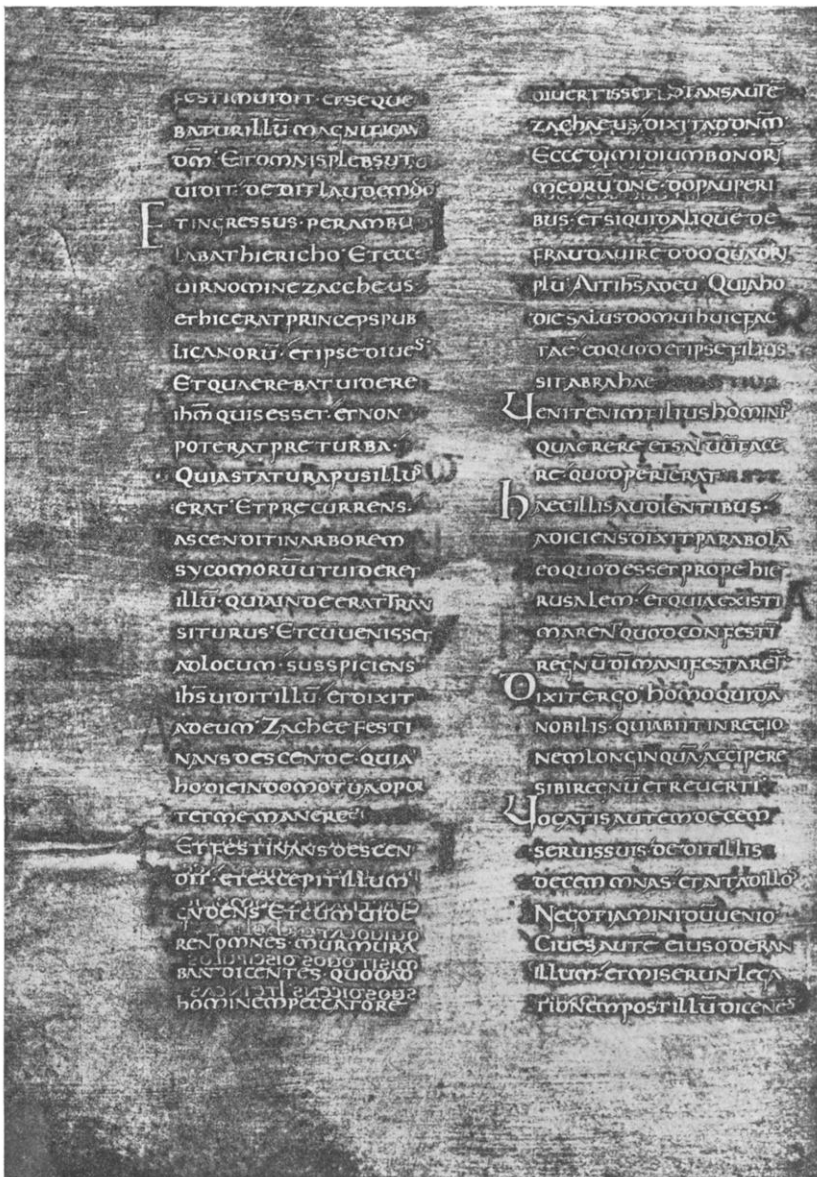 FESTIM UIDIT· ET SEQUE
BATUR ILLŪ MAGNIFICAN
DM̄· ET OMNIS PLEBS UT
UIDIT· DEDIT LAUDEM DO
ET INGRESSUS· PERAMBU
LABAT HIERICHO· ET ECCE
UIR NOMINE ZACCHEUS
ET HIC ERAT PRINCEPS PUB
LICANORŪ· ET IPSE DIUES·
ET QUAEREBAT UIDERE
IHM̄ QUIS ESSET· ET NON
POTERAT PRE TURBA·
QUIA STATURA PUSILLUS
ERAT· ET PRECURRENS·
ASCENDIT IN ARBOREM
SYCOMORŪ UT UIDERET
ILLŪ· QUIA INDE ERAT TRAN
SITURUS· ET CŪ UENISSET
AD LOCUM· SUSSPICIENS
IHS̄ UIDIT ILLŪ· ET DIXIT
AD EUM· ZACHEE FESTI
NANS DESCENDE· QUIA
HODIE IN DOMO TUA OPOR
TET ME MANERE·
ET FESTINANS DESCEN
DIT· ET EXCEPIT ILLUM
GAUDENS ET CUM UIDE
REN̄ OMNES· MURMURA
BAN̄ DICENTES· QUOD AD
HOMINEM PECCATORE
DIUERTISSET· STANS AUTĒ
ZACHAEUS· DIXIT AD DNM̄·
ECCE DIMIDIUM BONOR
MEORŪ DNĒ· DO PAUPERI
BUS· ET SI QUID ALIQUĒ DE
FRAUDAUI REDDO QUADRI
PLŪ· AIT IHS̄ AD EŪ· QUIA HO
DIE SALUS DOMUI HUIC FAC
TA Ē· EO QUOD ET IPSE FILIUS
SIT ABRAHAE
UENIT ENIM FILIUS HOMINIS
QUAERERE ET SALUŪ FACE
RE· QUOD PERIERAT
HAEC ILLIS AUDIENTIBUS·
ADICIENS DIXIT PARABOLĀ
EO QUOD ESSET PROPE HIE
RUSALEM· ET QUIA EXISTI
MAREN̄ QUOD CONFESTĪ
REGNŪ DĪ MANIFESTARET̄
DIXIT ERGO· HOMO QUIDĀ
NOBILIS· QUI ABIIT IN REGIO
NEM LONGINQUĀ· ACCIPERE
SIBI REGNŪ ET REUERTI·
UOCATIS AUTEM DECEM
SERUIS SUIS· DEDIT ILLIS
DECEM MNAS· ET AIT AD ILLOS
NEGOTIAMINI DŪ UENIO
CIUES AUTĒ EIUS ODERAN
ILLUM· ET MISERUN̄ LEGA
TIONEM POST ILLŪ DICENTES